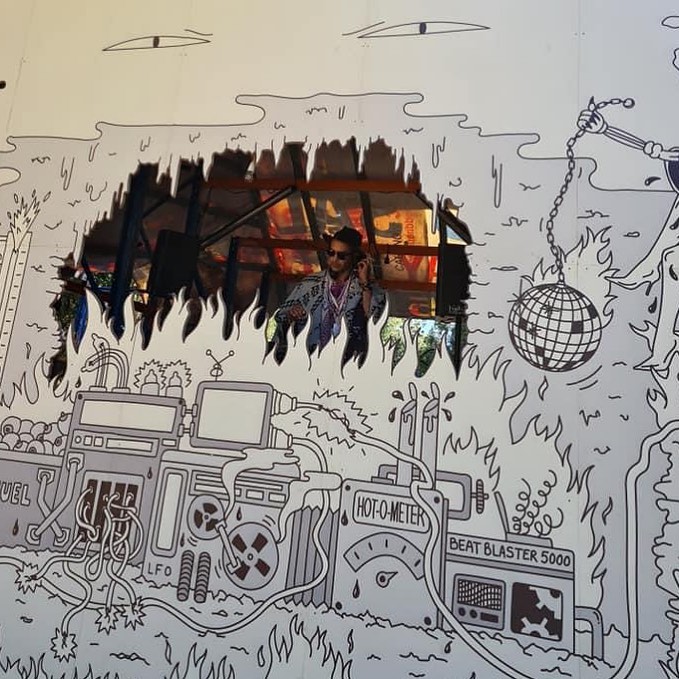 UEL
LFO
HOT-O-METER
BEAT BLASTER 5000